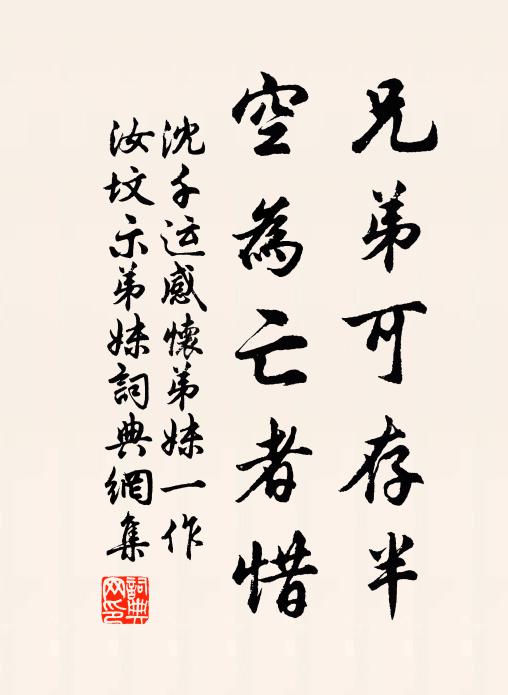 兄弟可存半
空為亡者惜
沈千运感懷弟妹一作
汝坟示弟妹詞典網集
詞典網印